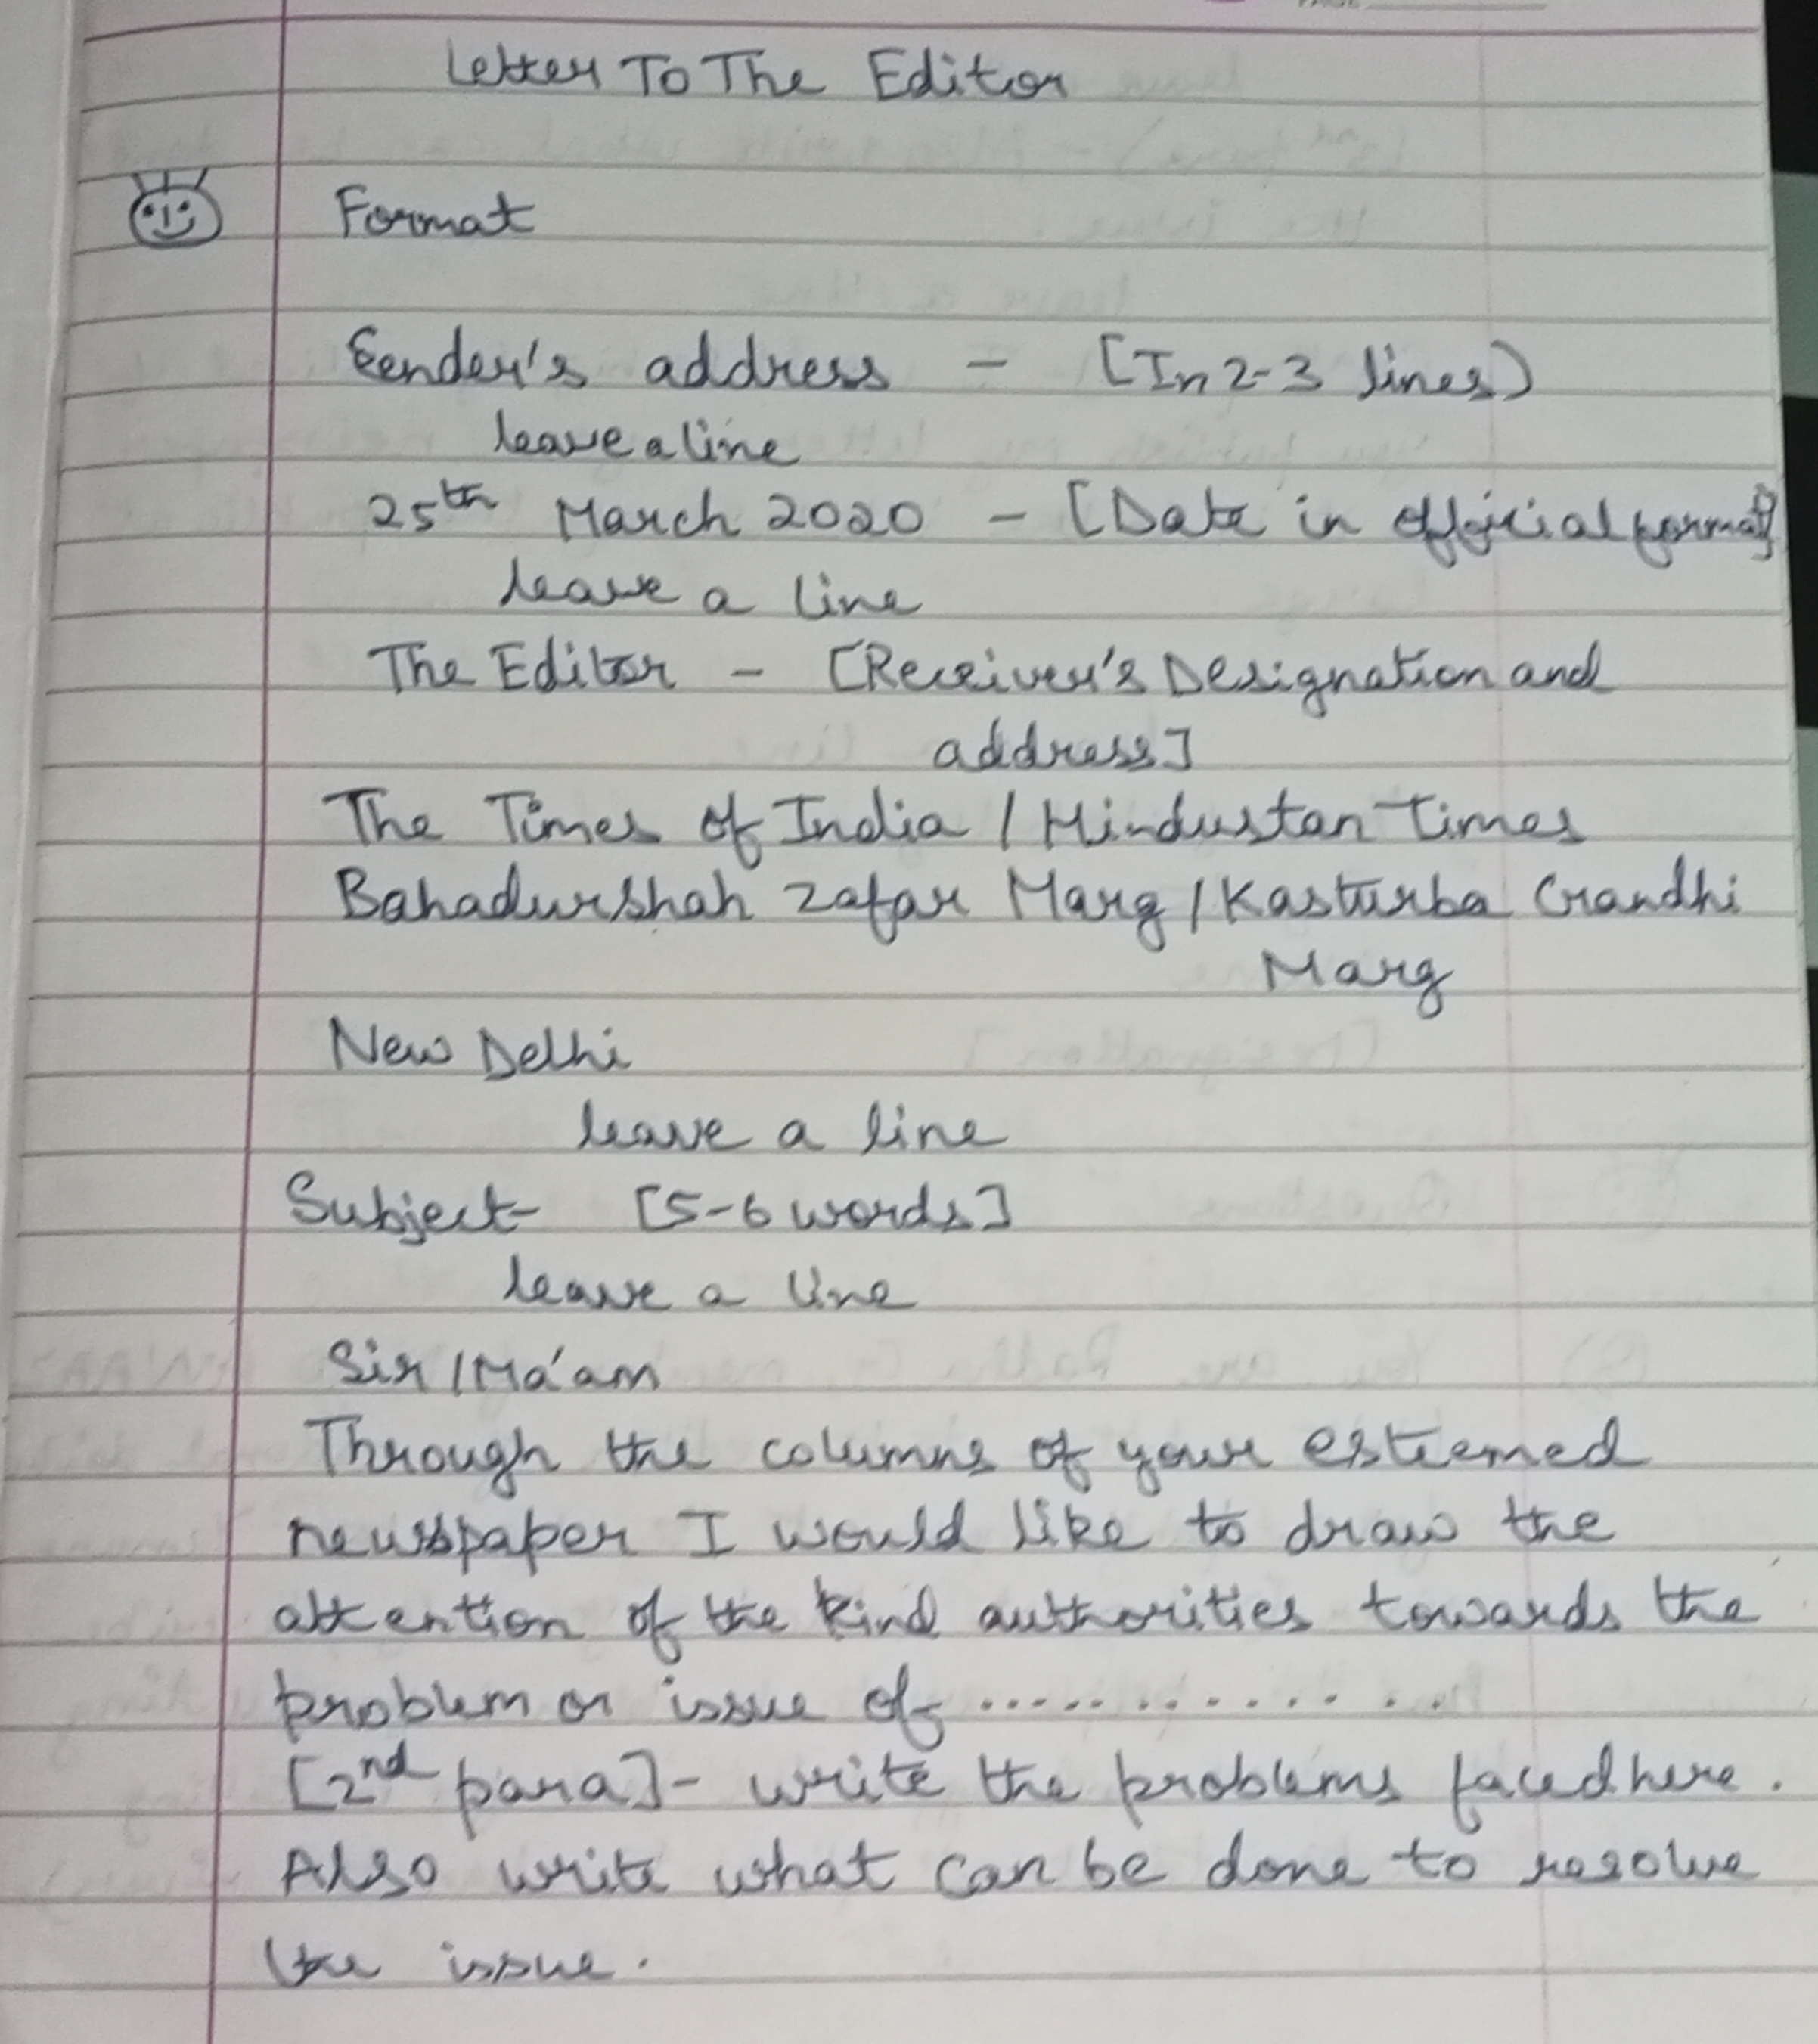 Letter To The Editor
Format
Sender's address - [In 2-3 lines)
leave a line
25th March 2020 - [Date in official format]
leave a line
The Editor - [Receiver's Designation and
address]
The Times of India / Hindustan Times
Bahadurshah Zafar Marg / Kasturba Gandhi
Marg
New Delhi
leave a line
Subject- [5-6 words]
leave a line
Sir / Ma'am
Through the columns of your esteemed
newspaper I would like to draw the
attention of the kind authorities towards the
problem or issue of ..............
[2nd para] - write the problems faced here.
Also write what can be done to resolve
the issue.